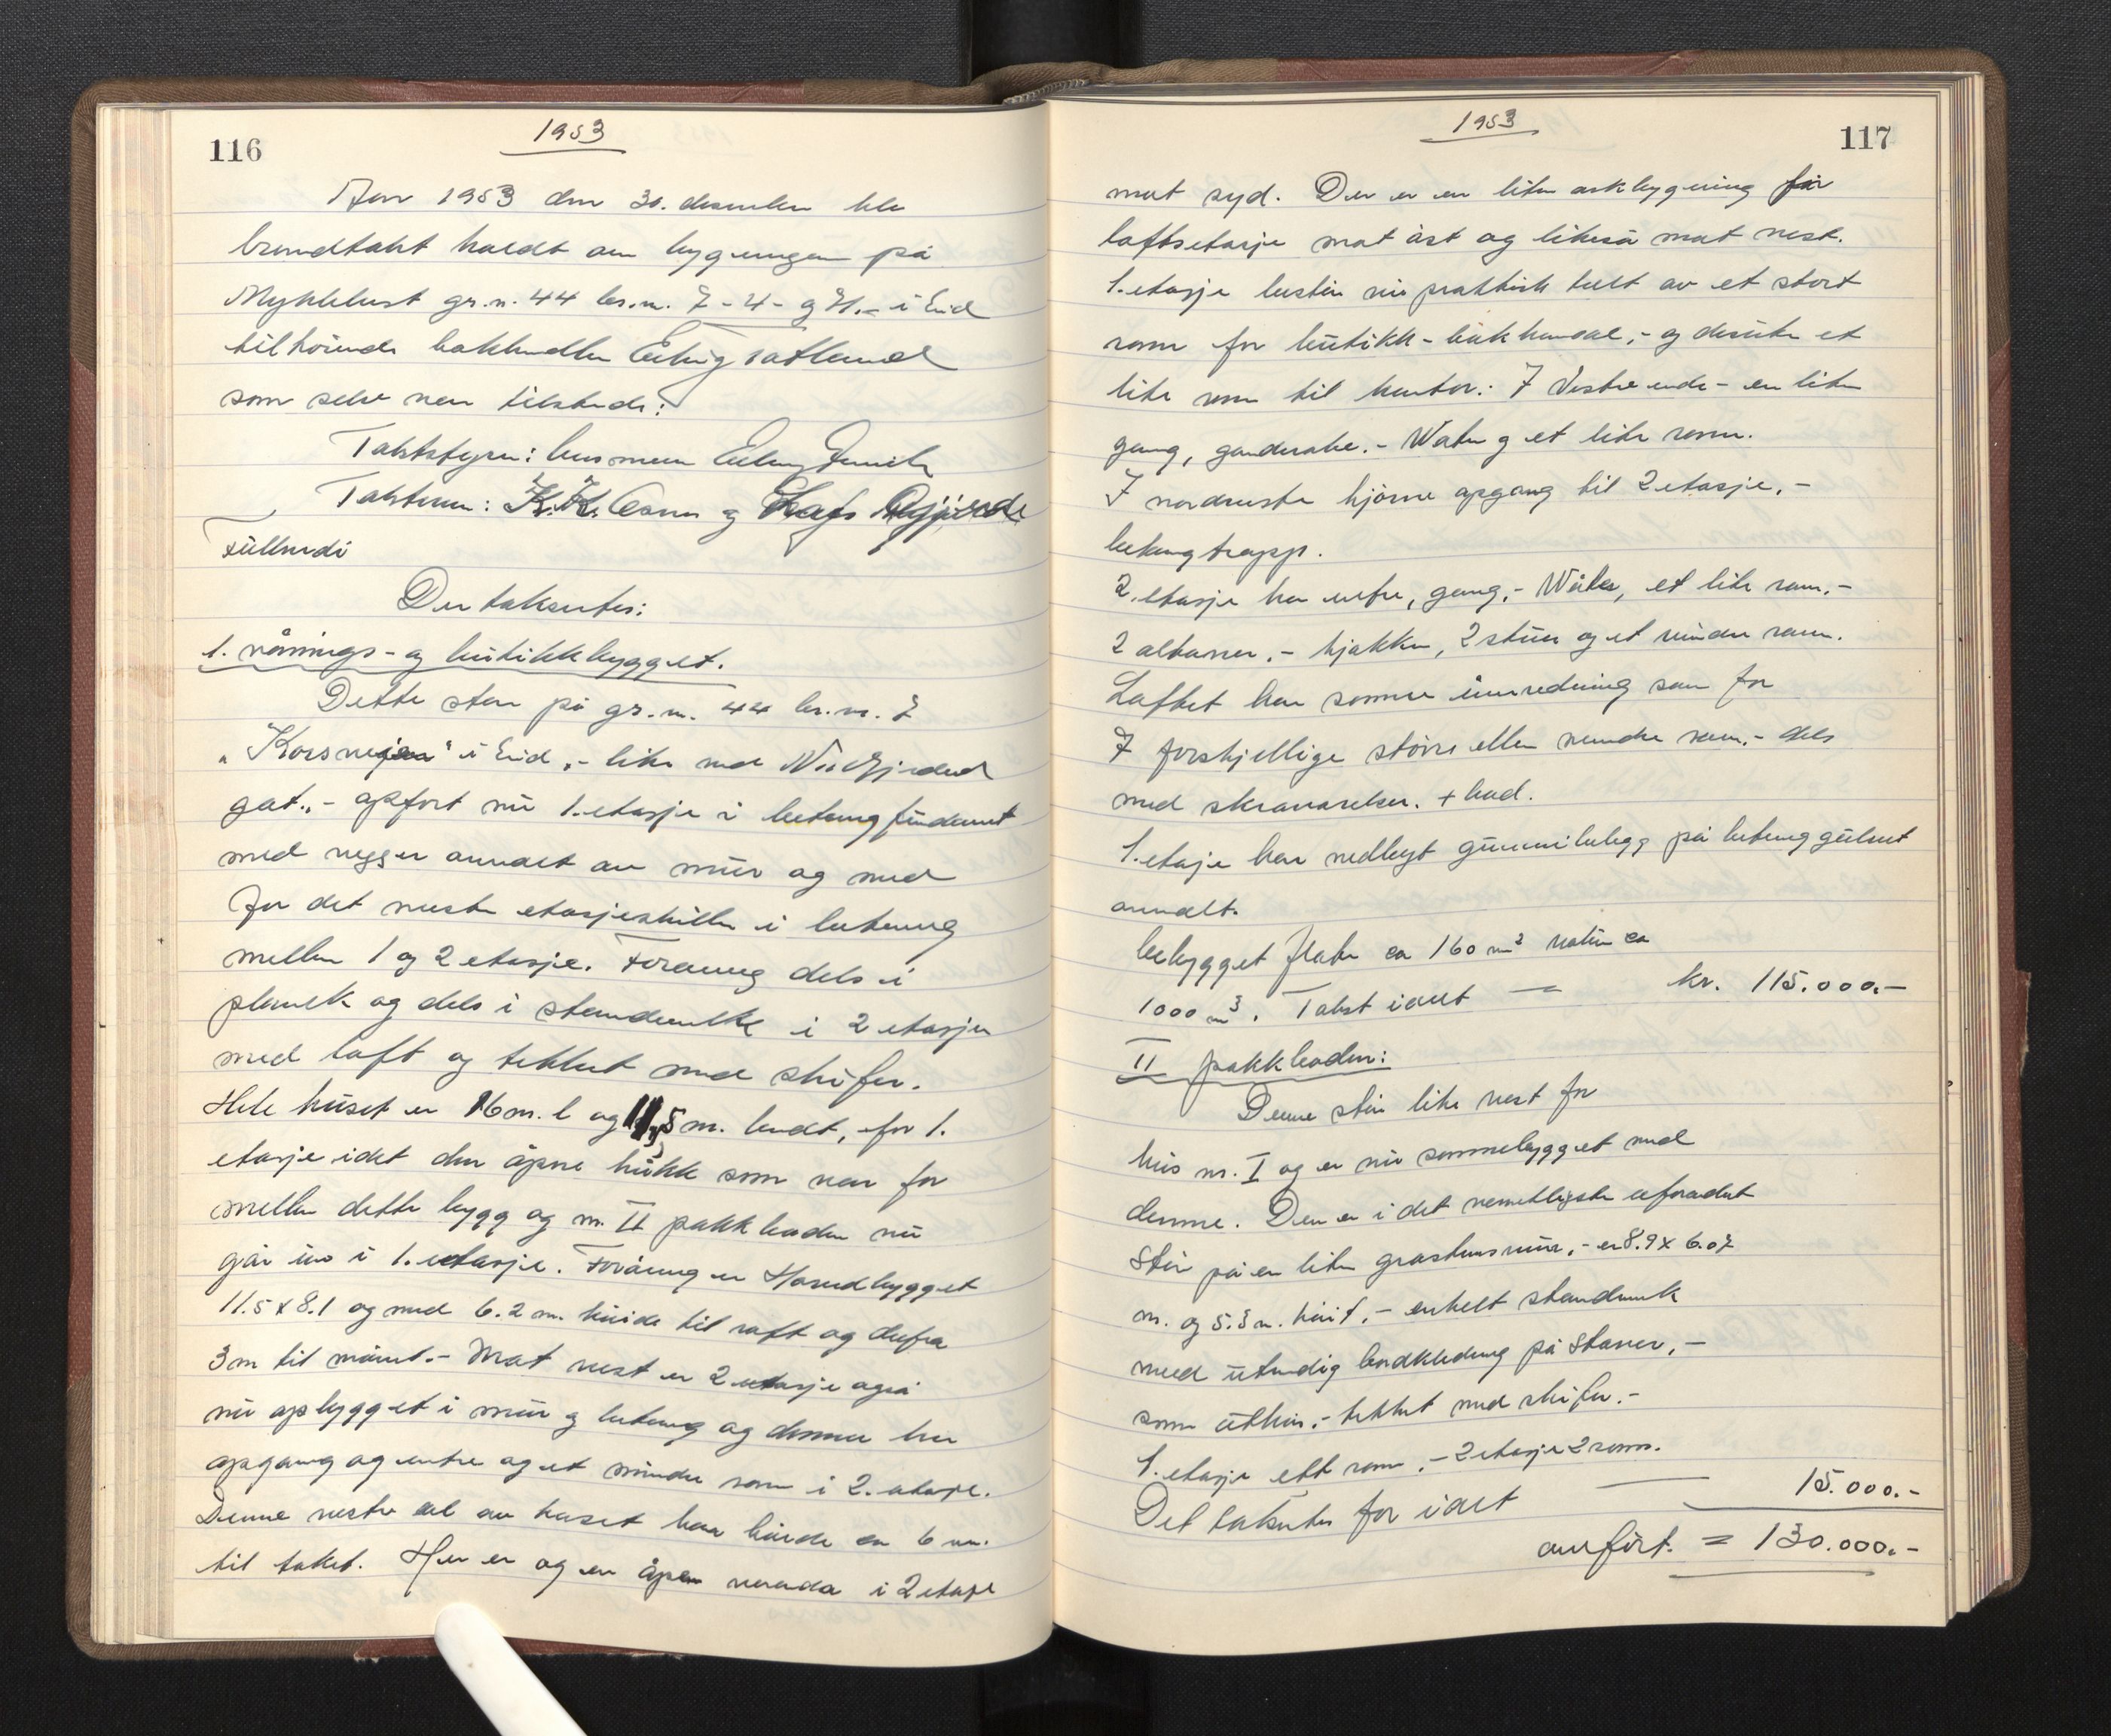 116
1953
Aar 1953 den 30. desember ble
brandtakst holdt over bygningen på
Myklebust gr.n. 44 br.n. 7-4- og 71.- i Eid
tilhörende bokhandler
som selv var tilstede:
Takststyrer: lensmann
Takstmenn: K.K. og
Fullmdi
Der takseres:
1. vånings- og butikkbygget.
Dette står på gr.n. 44 br.nr. 7
"Korsvejen" i Eid,- like ved
gat.,- opfört nu 1.etasje i betong fundamt
med vegger av mur og med
for det meste etasjeskille i betong
mellem 1 og 2 etasje. Foröverig dels i
plank og dels i standverkk i 2 etasje
med loft og tekket med skifer.
Hele huset er 16 m. l og 11,5 m. bredt, for 1.
etasje idet den åpne som var for
mellem dette bygg og nr. II pakkboden nu
går inn i 1. etasje. Foröverig er Hovedbygget
11.5 x 8.1 og med 6.2 m. höide til raft og derfra
3 m til mönet.- Mot vest er 2 etasje også
nu opbygget i mur og betong og denne har
opgang og entre og et mindre rom i 2. etasje.
Denne vestre del av huset har höide ca 6 m.
til taket. Her er og en åpen veranda i 2 etasje
1953
117
mot syd. Der er en liten arkbygning for
loftsetasje mot öst og likeså mot vest.
1. etasje består nu praktisk talt av et stort
rom for butikk - bokhandel,- og desuten et
lite rom til kontor. I Vestre ende - en liten
gang, garderobe.- Water og et lite rom.
I nordvestre hjörne opgang til 2 etasje.-
betongtrapp.
2. etasje har entre, gang,- Water, et lite rom.-
2 altaner.- kjökken, 2 stuer og et mindre rom.
Loftet har samme innredning som for
7 forskjellige större eller mindre rom.- dels
med skråvarelser. + bad.
1. etasje har nedlagt gummibelegg på betonggulvet
overalt.
bebygget flate ca 160 m² volum ca
1000 m³. Takst ialt — kr. 115.000.-
II pakkboden:
Denne står like vest for
hus nr. I og er nu sammebygget med
denne. Den er i det vesentligste uforadret
Står på en liten grastensmur,- er 8.9 x 6.07
m. og 5.3 m. höit,- enkelt standverk
med utvendig bordkledning på Staver,-
som uthus.- tekket med skifer.-
1. etasje ett rom.- 2 etasje 2 rom.
Det takseres for ialt — 15.000.-
overfört. = 130.000.-